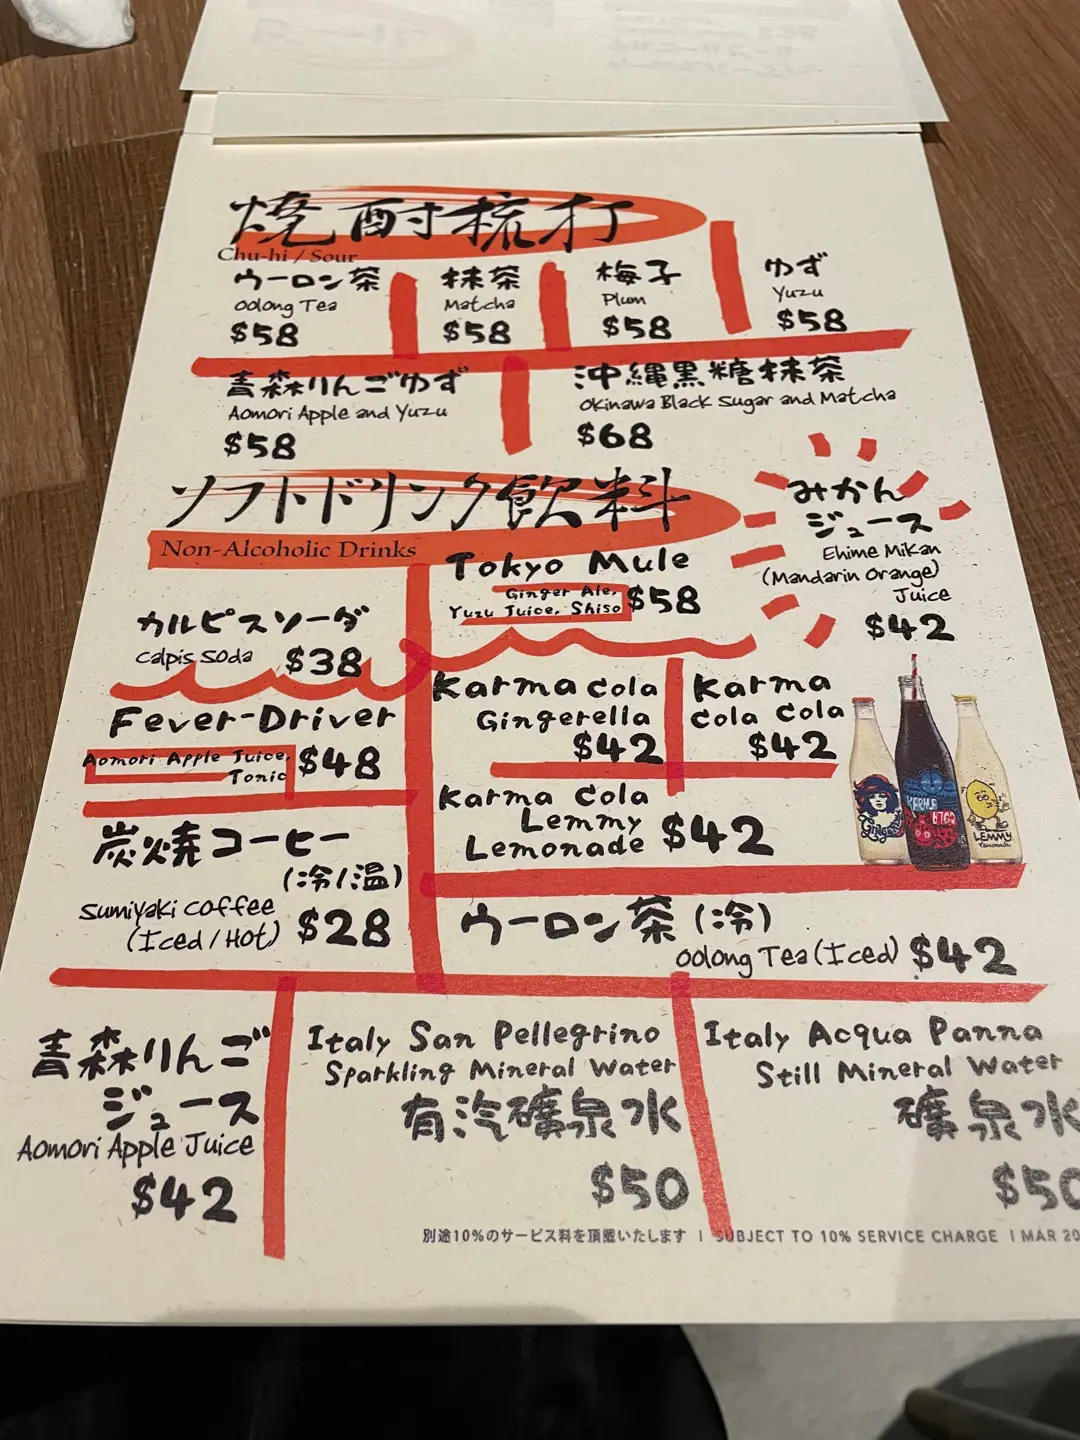 焼酎梳打
Chu-hi / Sour
ウーロン茶
Oolong Tea
$58
抹茶
Matcha
$58
梅子
Plum
$58
ゆず
Yuzu
$58
青森りんごゆず
Aomori Apple and Yuzu
$58
沖縄黒糖抹茶
Okinawa Black Sugar and Matcha
$68
ソフトドリンク飲料
Non-Alcoholic Drinks
みかん
ジュース
Ehime Mikan
(Mandarin Orange)
Juice
$42
Tokyo Mule
Ginger Ale,
Yuzu Juice, Shiso
$58
カルピスソーダ
Calpis Soda $38
Fever-Driver
Aomori Apple Juice,
Tonic
$48
Karma Cola
Gingerella
$42
Karma
Cola Cola
$42
Karma Cola
Lemmy
Lemonade $42
KARMA
LEMMY
Lemonade
炭焼コーヒー
(冷/温)
Sumiyaki Coffee
(Iced/Hot) $28
ウーロン茶(冷)
Oolong Tea(Iced) $42
青森りんご
ジュース
Aomori Apple Juice
$42
Italy San Pellegrino
Sparkling Mineral Water
有汽礦泉水
$50
Italy Acqua Panna
Still Mineral Water
礦泉水
$50
別途10%のサービス料を頂戴いたします | SUBJECT TO 10% SERVICE CHARGE | MAR 20